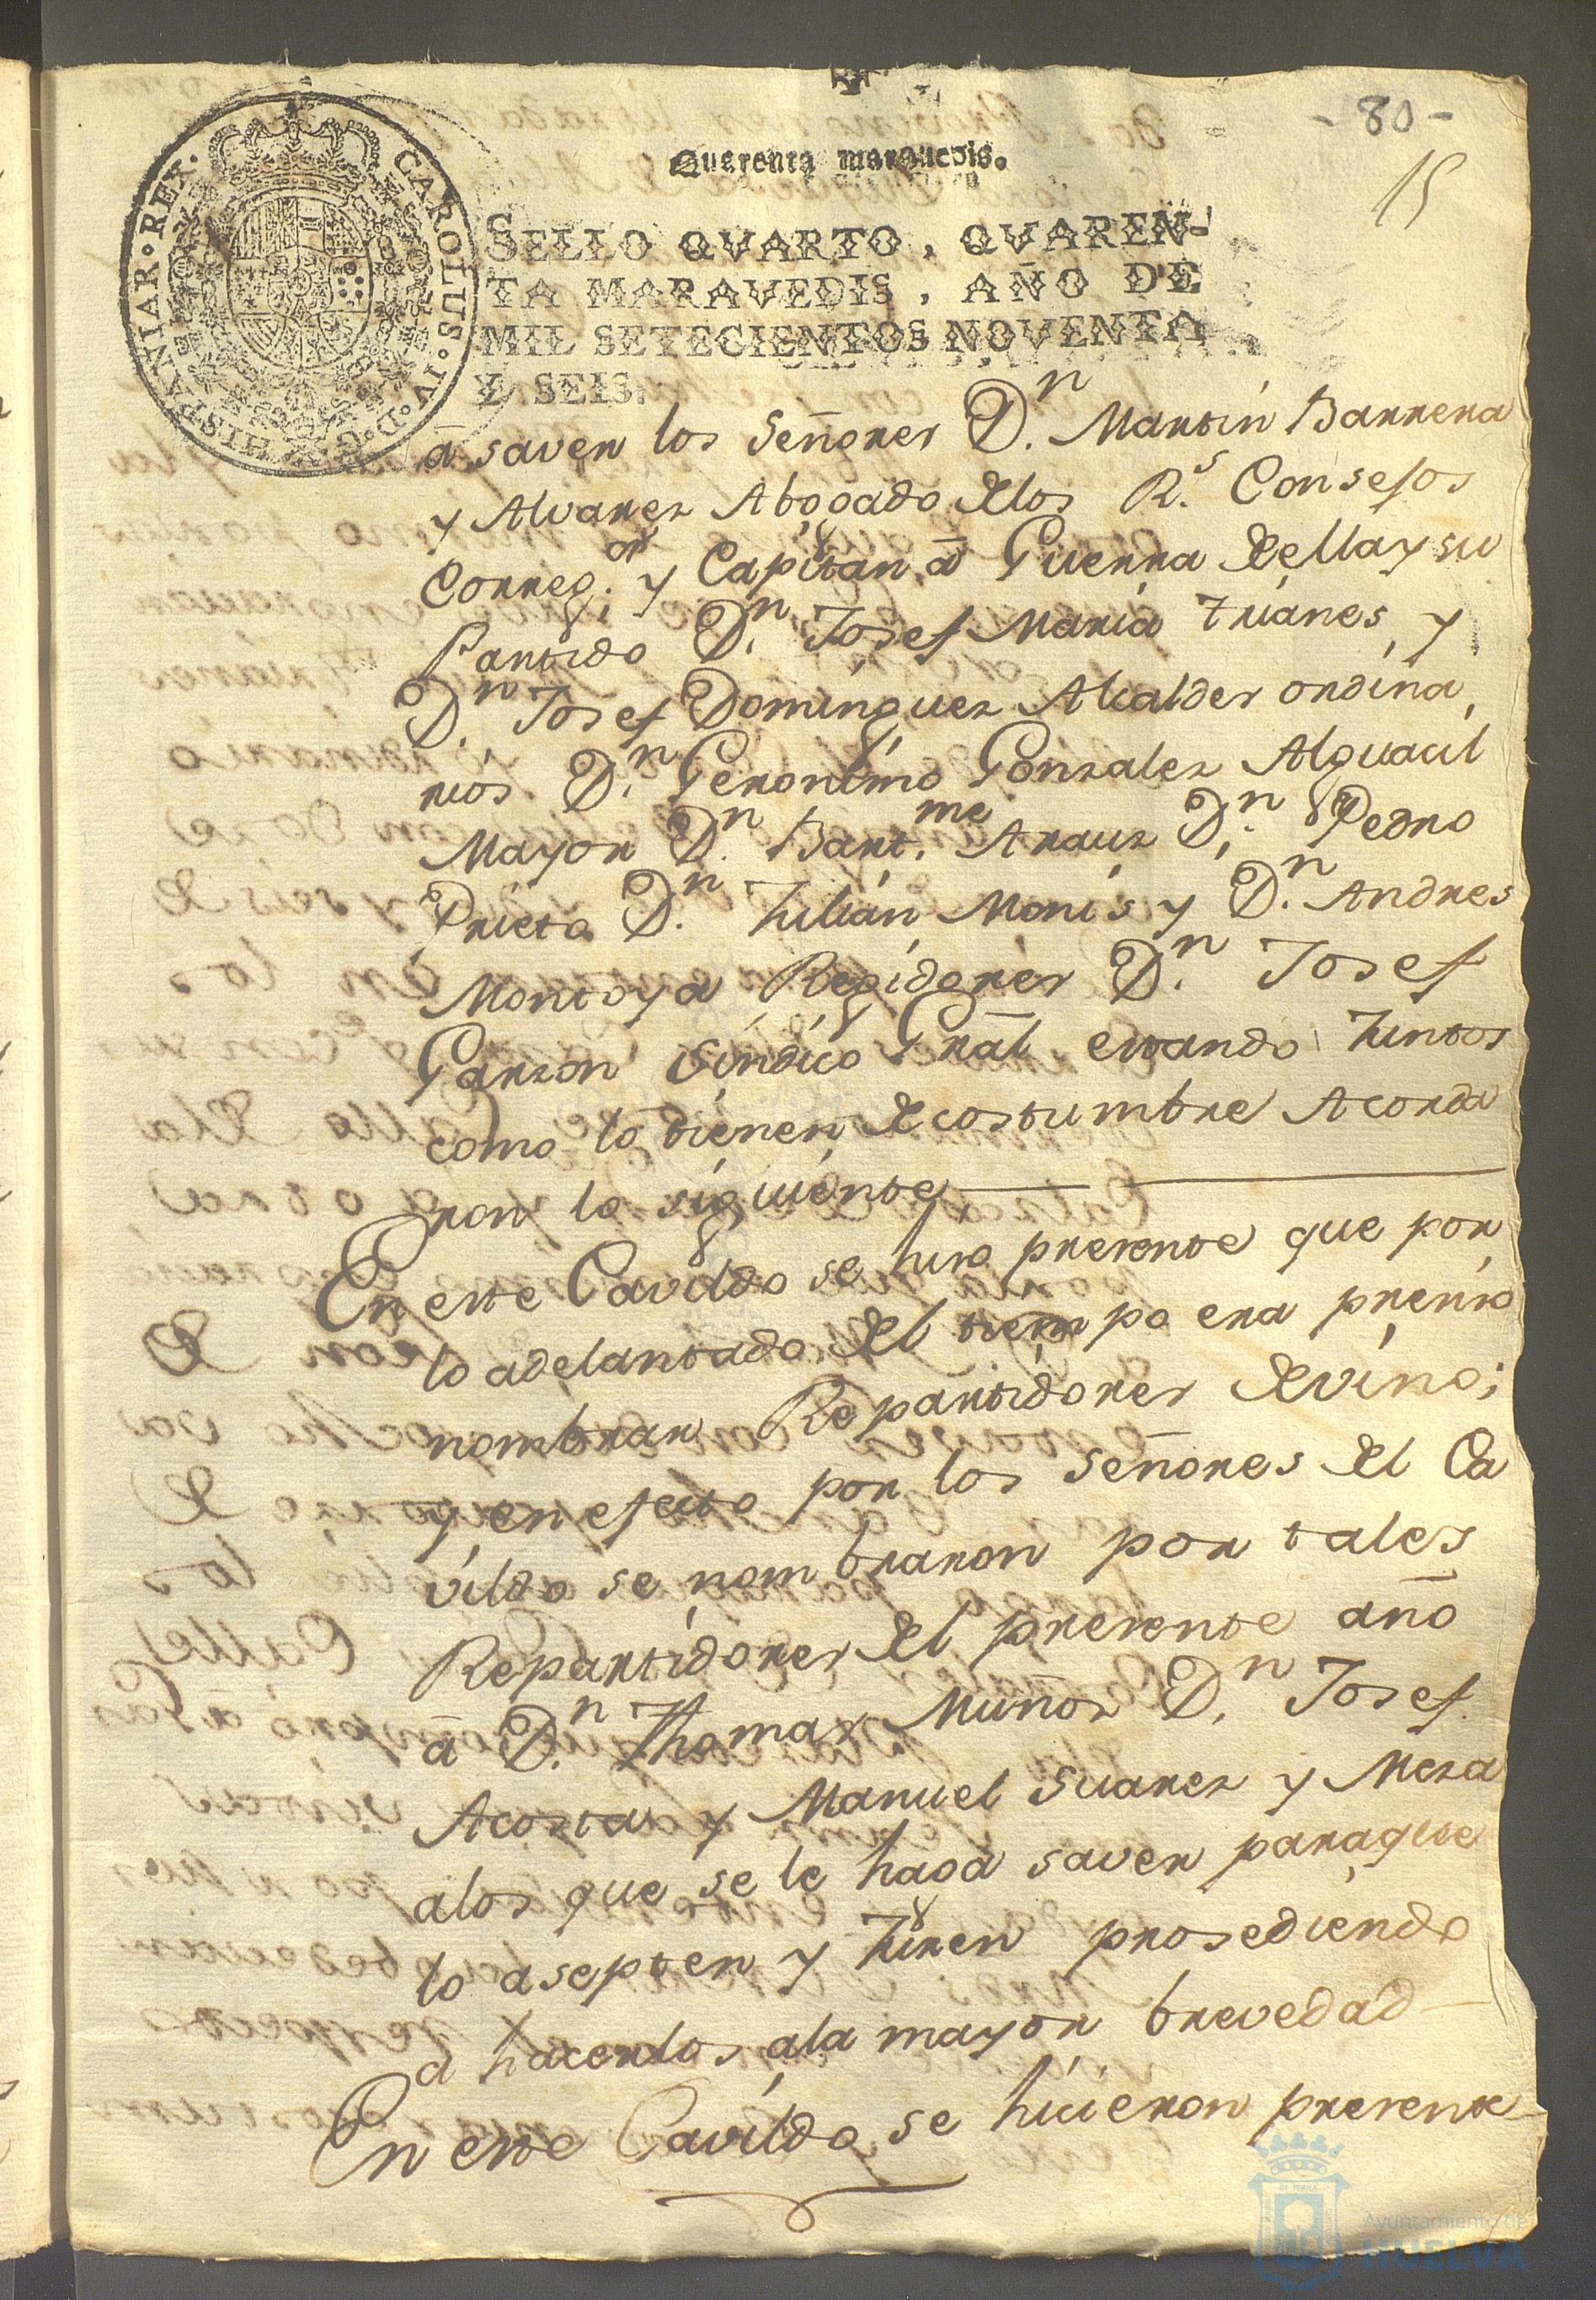 - 80 -
15
Quarenta marauedis.
CAROLUS · IV · D · G · HISPANIAR · REX ·
SELLO QVARTO, QVAREN-
TA MARAVEDIS, AÑO DE
MIL SETECIENTOS NOVENTA
Y SEIS.
â saver los Señores D.n Martin Barrera
y Alvarez Abogado delos R.s Consejos
Correg.or y Capitan â Guerra della y su
Partido D.n Josef Maria Trianes, y
D.n Josef Dominguez Alcaldes ordina,
rios D.n Geronimo Gonzalez Alguacil
Mayor D.n Bart.me Arauz D.n Pedro
Prieto D.n Julian Monis y D.n Andres
Montoya Regidores D.n Josef
Garzon Sindico Grãl estando Juntos
como lo tienen de costumbre Acorda
ron lo siguiente
En este Cavildo se hizo presente que por
lo adelantado del tiempo era presiso
nombrar Repartidores de vino;
y en efecto por los Señores del Ca
vildo se nombraron por tales
Repartidores del presente año
â D.n Thomas Muñoz D.n Josef
Acosta y Manuel Suarez y Meza
alos que se le haga saver paraque
lo asepten y Juren prosediendo
a hacerlos ala mayor brevedad
En este Cavildo se hicieron presente
Ayuntamiento de
HUELVA